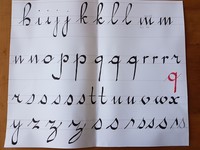 h i i j j k k l l m m
n n o p p q q q r r r r
q
r s s s s s t t u u u w w x
y z z z s s r s r s s